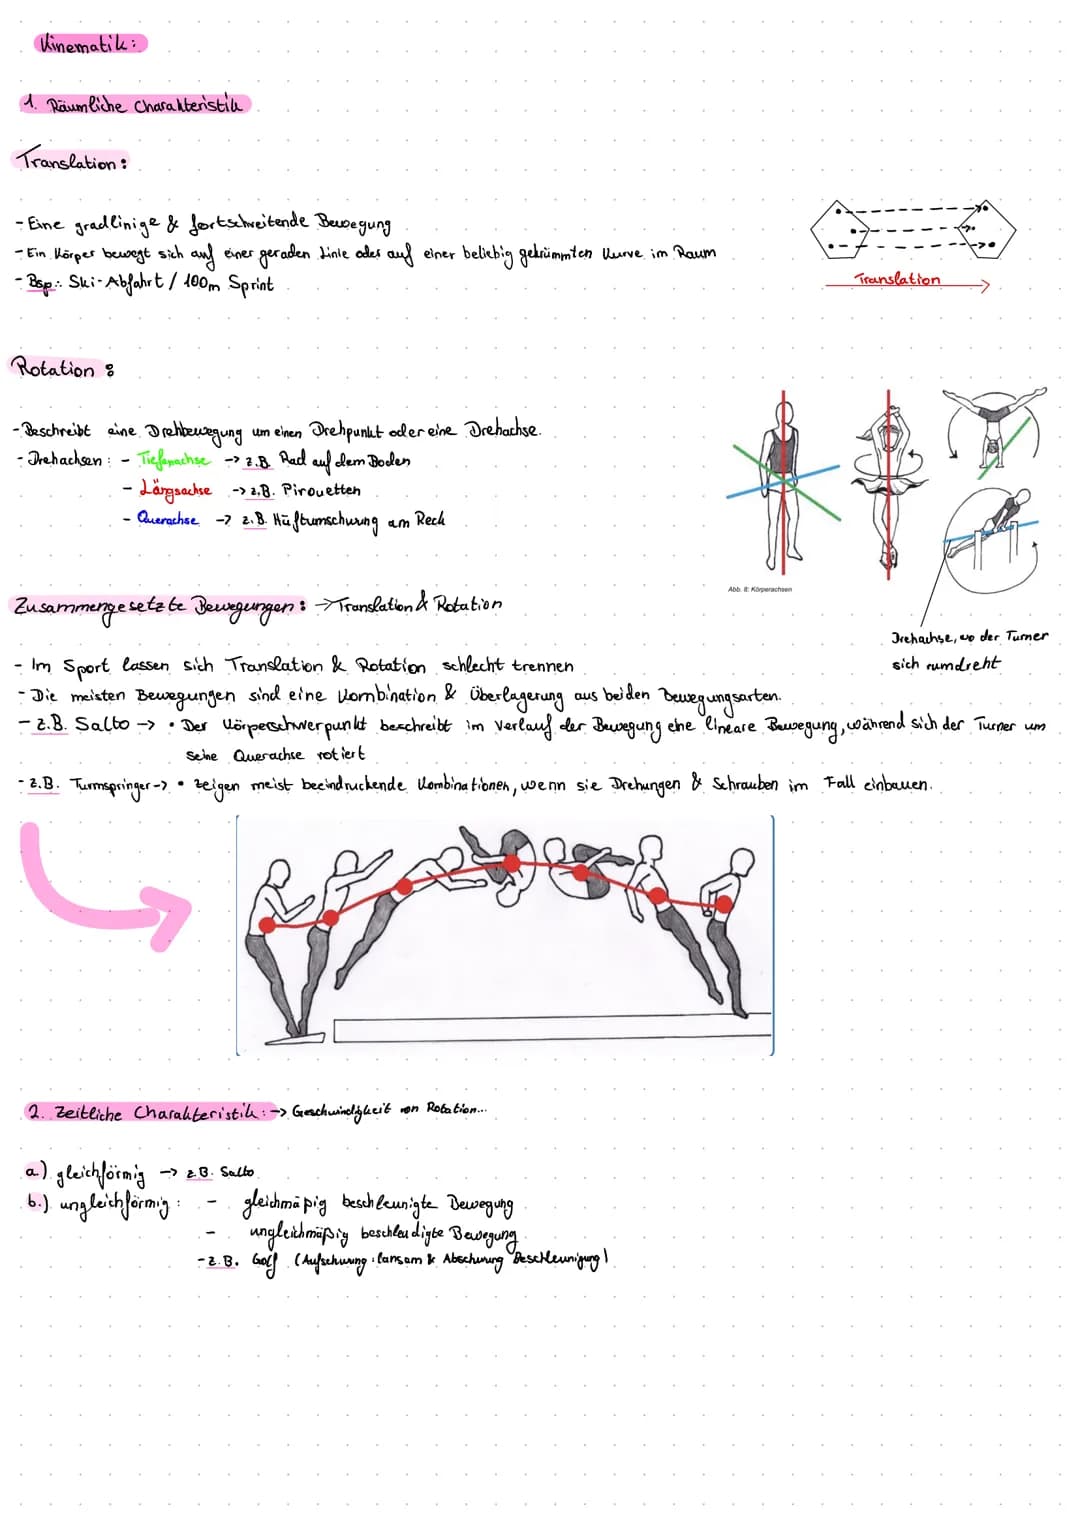 Kinematik:
1. Räumliche Charakteristik
Translation:
- Eine gradlinige & fortschreitende Bewegung
- Ein Körper bewegt sich auf einer geraden Linie oder auf einer beliebig gekrümmten Kurve im Raum
- Bsp.: Ski-Abfahrt / 100m Sprint
Translation
Rotation:
- Beschreibt eine Drehbewegung um einen Drehpunkt oder eine Drehachse.
- Drehachsen: - Tiefenachse -> z.B. Rad auf dem Boden
- Längsachse -> z.B. Pirouetten
- Querachse -> z.B. Hüftumschwung am Reck
Abb. 8: Körperachsen
Drehachse, wo der Turner
sich rumdreht
Zusammengesetzte Bewegungen: -> Translation & Rotation
- Im Sport lassen sich Translation & Rotation schlecht trennen
- Die meisten Bewegungen sind eine Kombination & Überlagerung aus beiden Bewegungsarten.
- z.B. Salto -> • Der Körperschwerpunkt beschreibt im Verlauf der Bewegung eine lineare Bewegung, während sich der Turner um
seine Querachse rotiert
- z.B. Turmspringer -> • zeigen meist beeindruckende Kombinationen, wenn sie Drehungen & Schrauben im Fall einbauen.
2. Zeitliche Charakteristik: -> Geschwindigkeit von Rotation...
a.) gleichförmig -> z.B. Salto
b.) ungleichförmig: - gleichmäßig beschleunigte Bewegung
- ungleichmäßig beschleudigte Bewegung
- z.B. Golf (Aufschwung: lansam & Abschwung Beschleunigung)